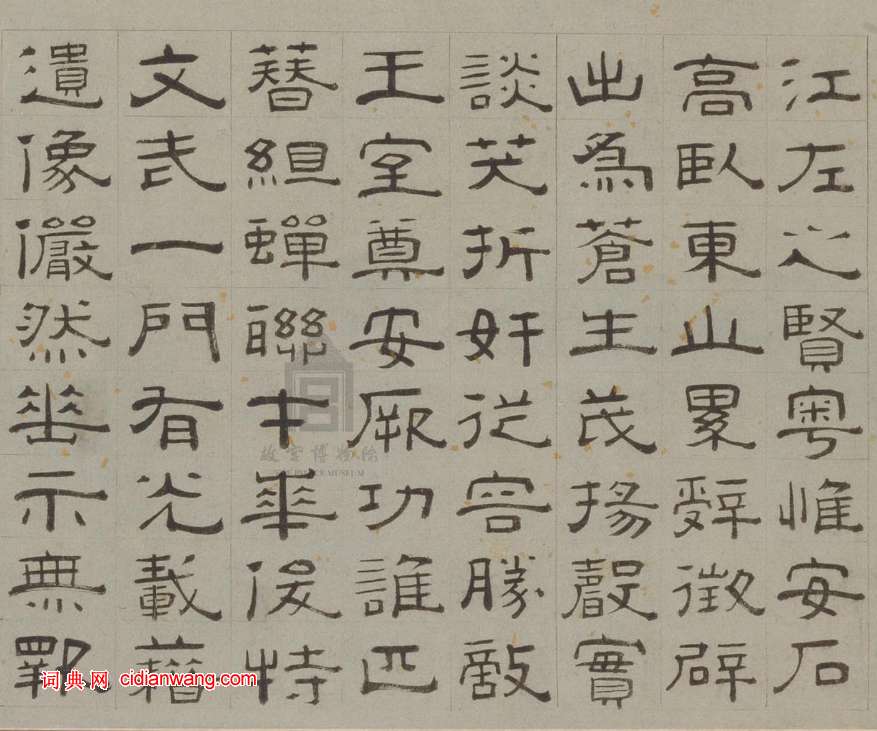 江左之賢粤惟安石
高臥東山累辭徵辟
出爲蒼生茂揚聲實
談笑折奸從容勝敵
王室奠安厥功誰匹
簪組蟬聯才華俊特
文武一門有光載籍
遺像儼然垂示無斁
故宫博物院
THE PALACE MUSEUM
词典网 cidianwang.com